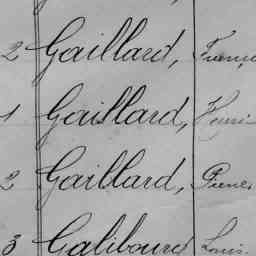 2 Gaillard, France
1 Gaillard, Henri
2 Gaillard, Pierre
3 Galibourd Louis